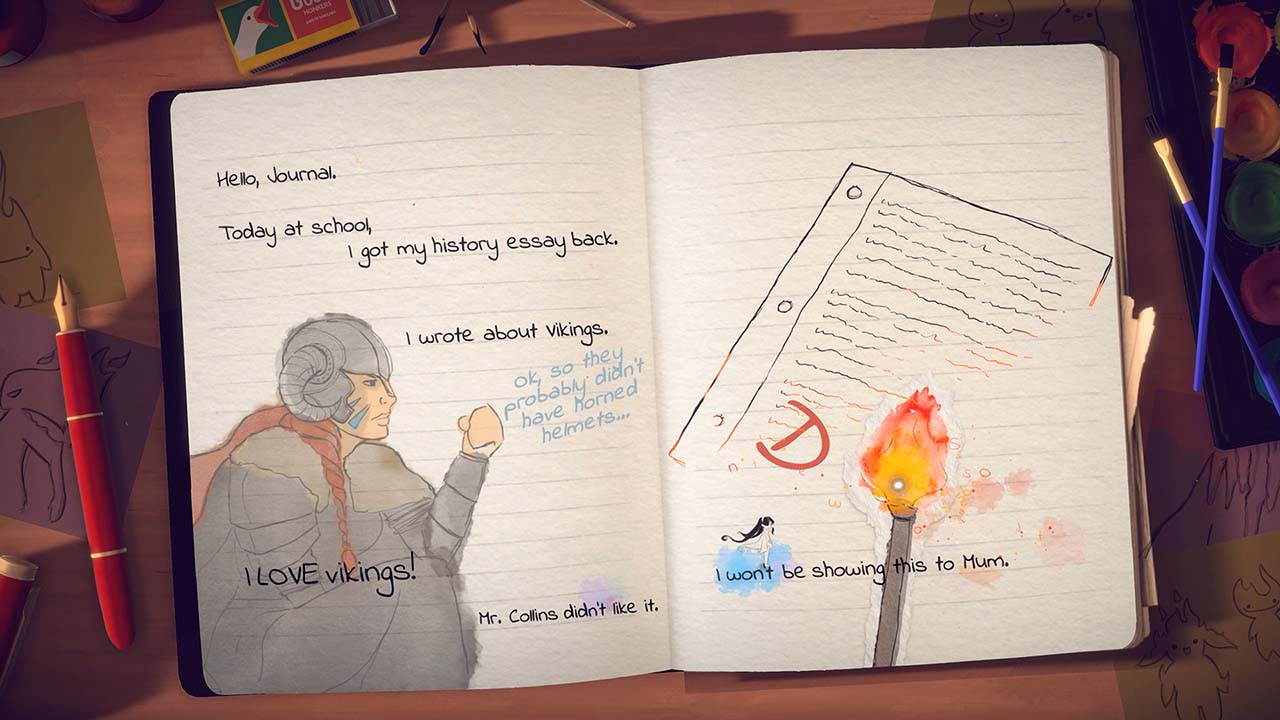 HONKERS
Hello, Journal.
Today at school,
I got my history essay back.
I wrote about vikings.
ok, so they
probably didn't
have horned
helmets...
I LOVE vikings!
Mr. Collins didn't like it.
D
I won't be showing this to Mum.